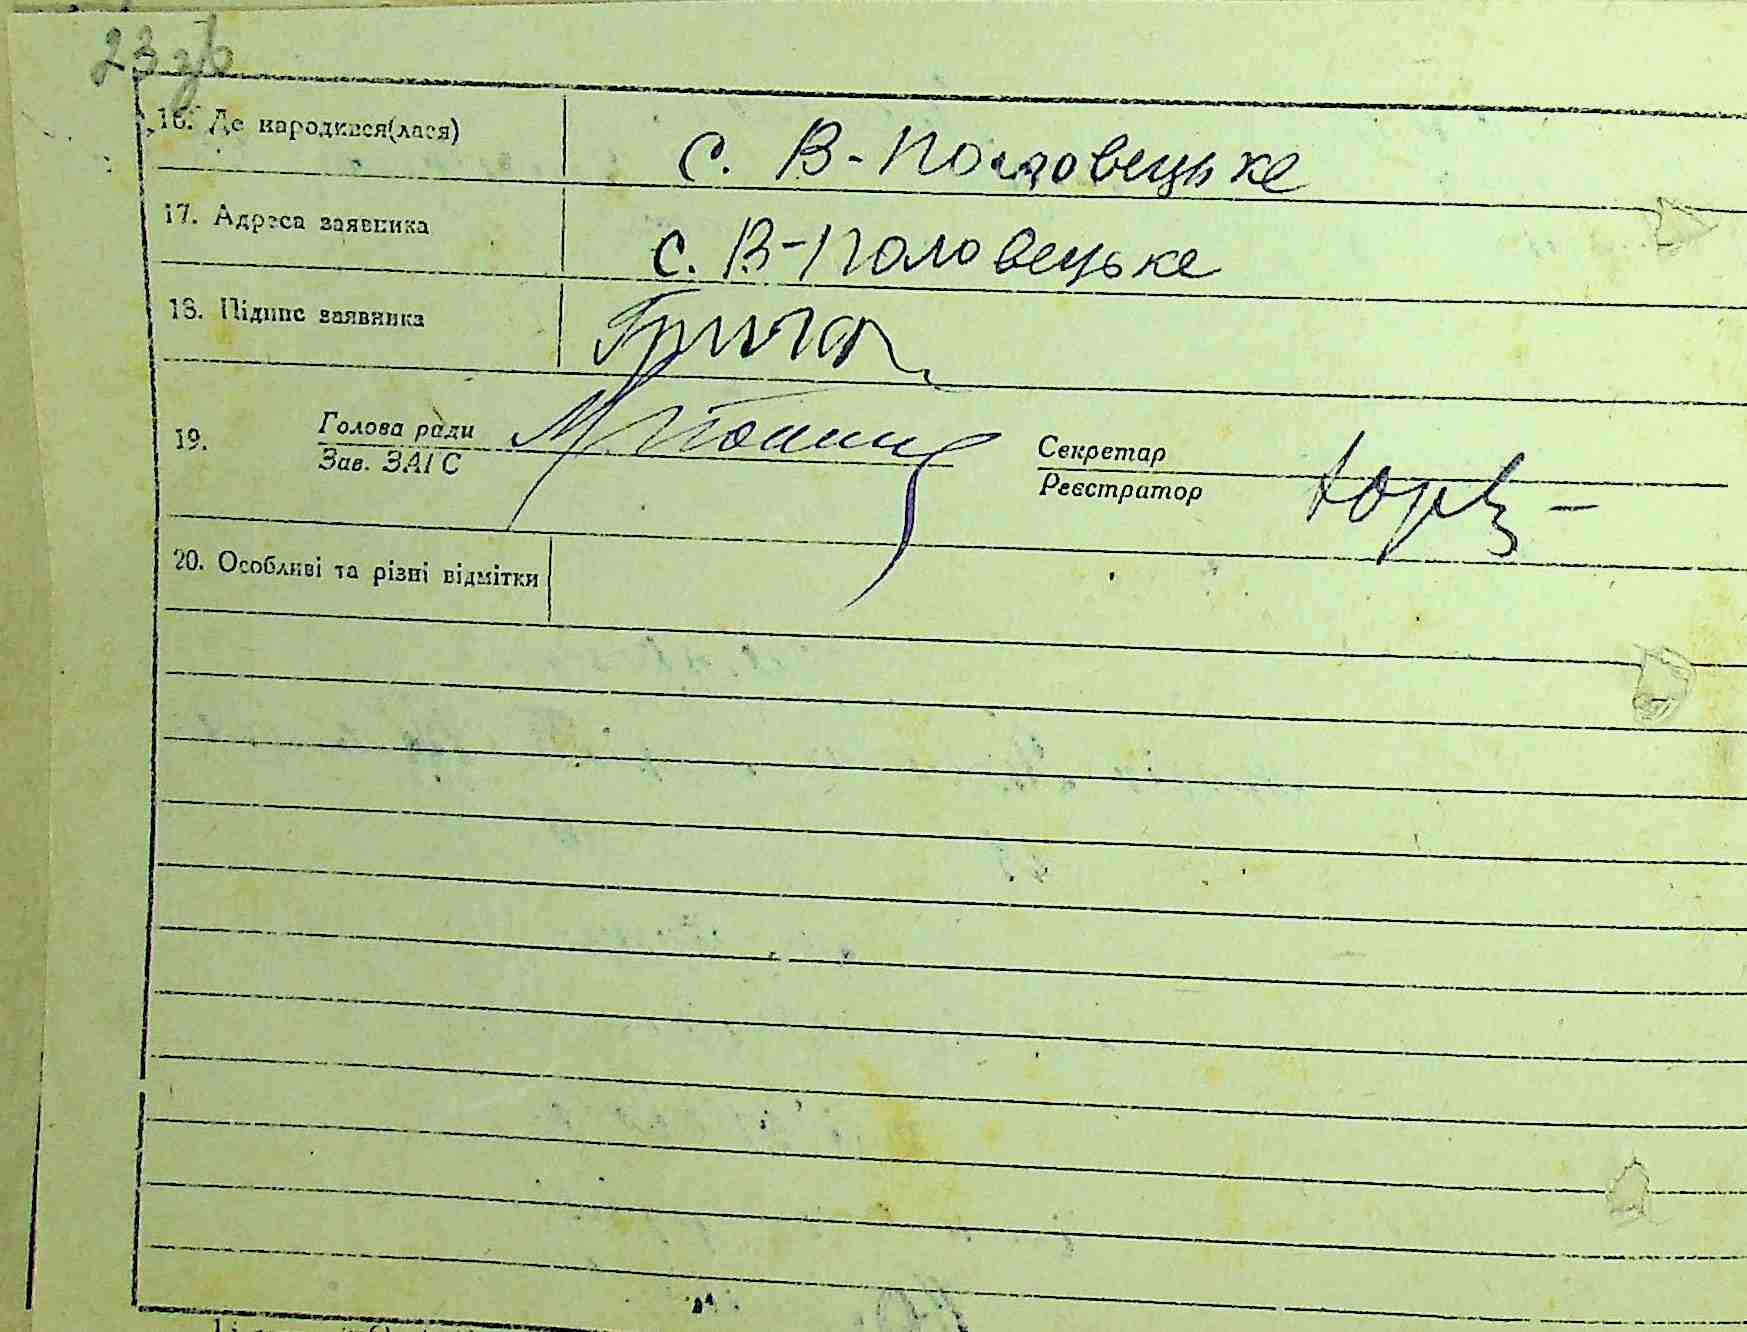 23 зв
16. Де народився(лася) с. В-Половецьке
17. Адреса заявника с. В-Половецьке
18. Підпис заявника
19. Голова ради Секретар
Зав. ЗАГС Реєстратор
20. Особливі та різні відмітки